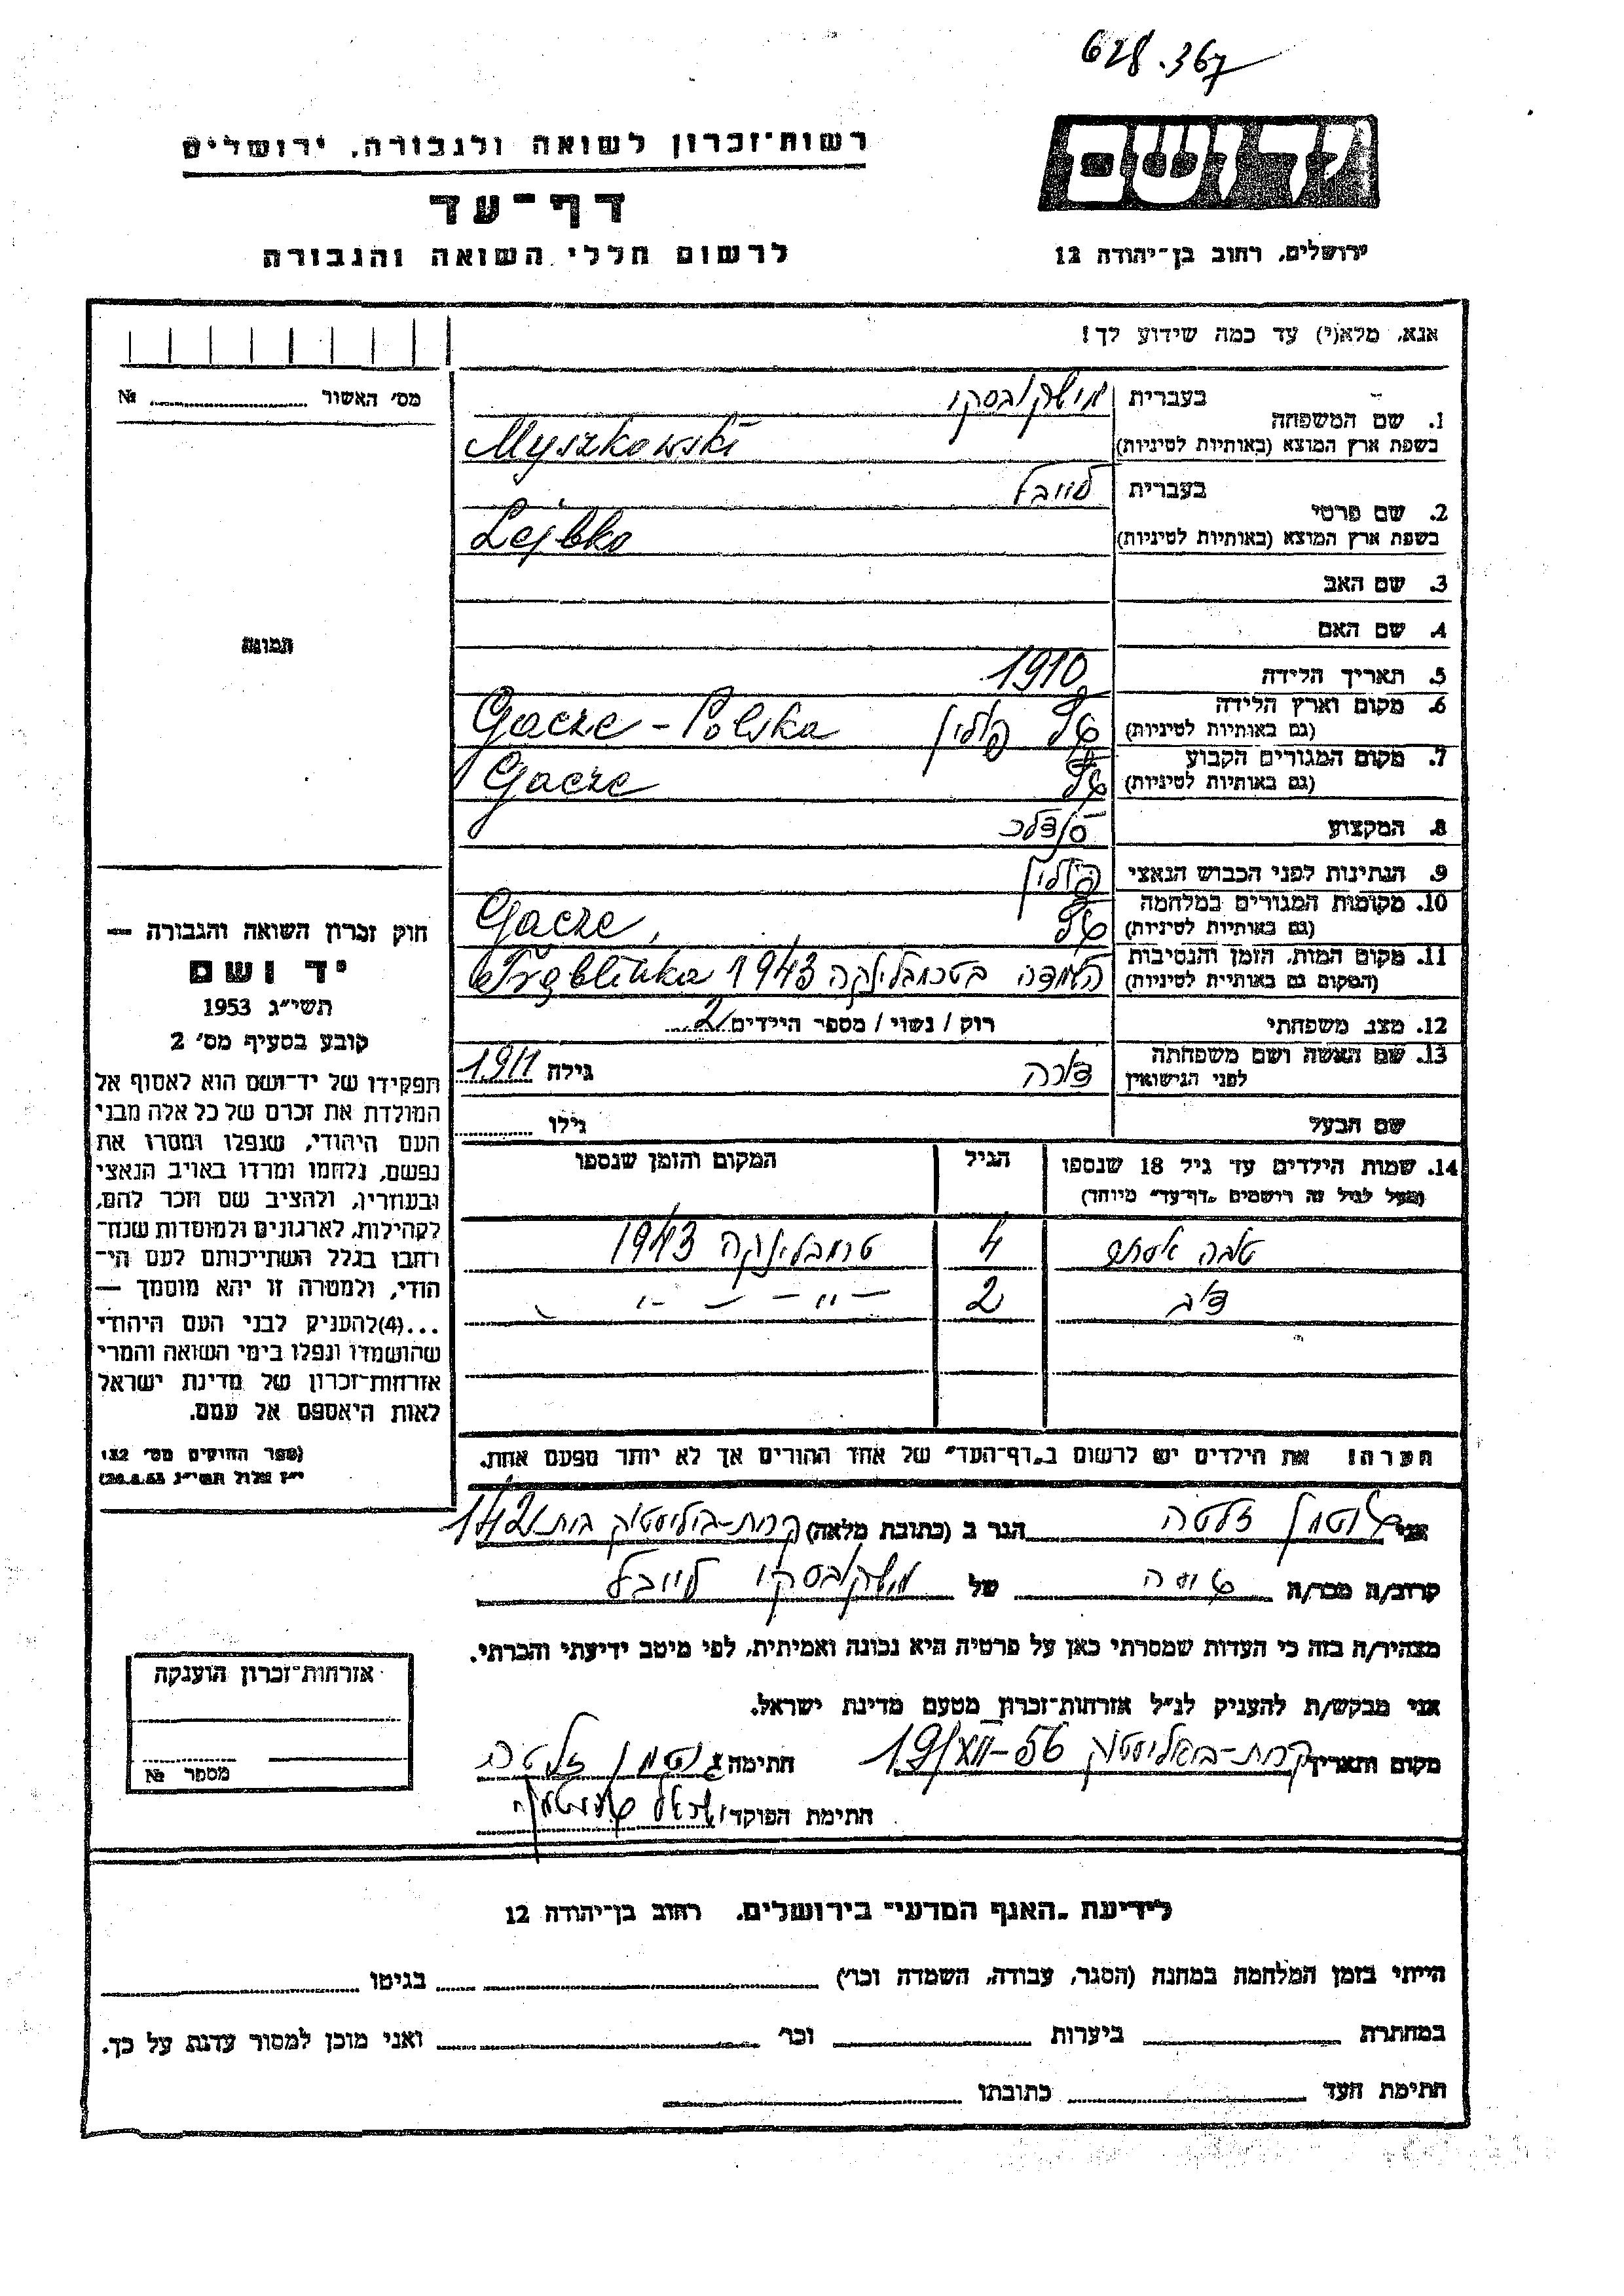 628.367
רשות־זכרון לשואה ולגבורה, ירושלים
יד ושם
דף־עד
לרשום חללי השואה והגבורה
ירושלים, רחוב בן־יהודה 12
אנא, מלא(י) עד כמה שידוע לך!
מס' האשור № 
1. שם המשפחה
בעברית מישקובסקי
בשפת ארץ המוצא (באותיות לטיניות) Myszkowski
2. שם פרטי
בעברית לייבל
בשפת ארץ המוצא (באותיות לטיניות) Lejbko
3. שם האב
4. שם האם
תמונה
5. תאריך הלידה 1910
6. מקום וארץ הלידה
(גם באותיות לטיניות) פולין Polska
7. מקום המגורים הקבוע
(גם באותיות לטיניות)
8. המקצוע סנדלר
9. הנתינות לפני הכבוש הנאצי פולין
10. מקומות המגורים במלחמה
(גם באותיות לטיניות)
11. מקום המות, הזמן והנסיבות
(המקום גם באותיות לטיניות) בטרמבלינקה 1943 Tręblinka
12. מצב משפחתי רוק / נשוי / מספר הילדים 2
13. שם האשה ושם משפחתה
לפני הנישואין שרה גילה 1911
שם הבעל גילו
14. שמות הילדים עד גיל 18 שנספו הגיל המקום והזמן שנספו
(מעל לגיל זה רושמים "דף־עד" מיוחד)
טובה אסתר 4 טרמבלינקה 1943
2 – " – –
הערה! את הילדים יש לרשום ב"דף־העד" של אחד ההורים אך לא יותר מפעם אחת.
חוק זכרון השואה והגבורה —
יד ושם
תשי"ג 1953
קובע בסעיף מס' 2
תפקידו של יד־ושם הוא לאסוף אל
המולדת את זכרם של כל אלה מבני
העם היהודי, שנפלו ומסרו את
נפשם, נלחמו ומרדו באויב הנאצי
ובעוזריו, ולהציב שם וזכר להם,
לקהילות, לארגונים ולמוסדות שנח־
רבו בגלל השתייכותם לעם הי־
הודי, ולמטרה זו יהא מוסמך —
...(4) להעניק לבני העם היהודי
שהושמדו ונפלו בימי השואה והמרי
אזרחות־זכרון של מדינת ישראל
לאות היאספם אל עמם.
(ספר החוקים מס' 132,
י"ז אלול תשי"ג 28.8.53)
אני גוטמן זלטה הגר ב (כתובת מלאה) קרית־ביליסטוק בית 142
קרוב/ה מכר/ה של מישקובסקי לייבל
מצהיר/ה בזה כי העדות שמסרתי כאן על פרטיה היא נכונה ואמיתית, לפי מיטב ידיעתי והכרתי.
אני מבקש/ת להעניק לנ"ל אזרחות־זכרון מטעם מדינת ישראל.
מקום ותאריך קרית־ביאליסטוק 19/XII–56 חתימה גוטמן זלטה
חתימת הפוקד ישראל
אזרחות־זכרון הוענקה
מספר №
לידיעת "האגף המדעי" בירושלים, רחוב בן־יהודה 12
הייתי בזמן המלחמה במחנה (הסגר, עבודה, השמדה וכו') בגיטו
במחתרת ביערות וכו' ואני מוכן למסור עדות על כך.
חתימת העד כתובתו